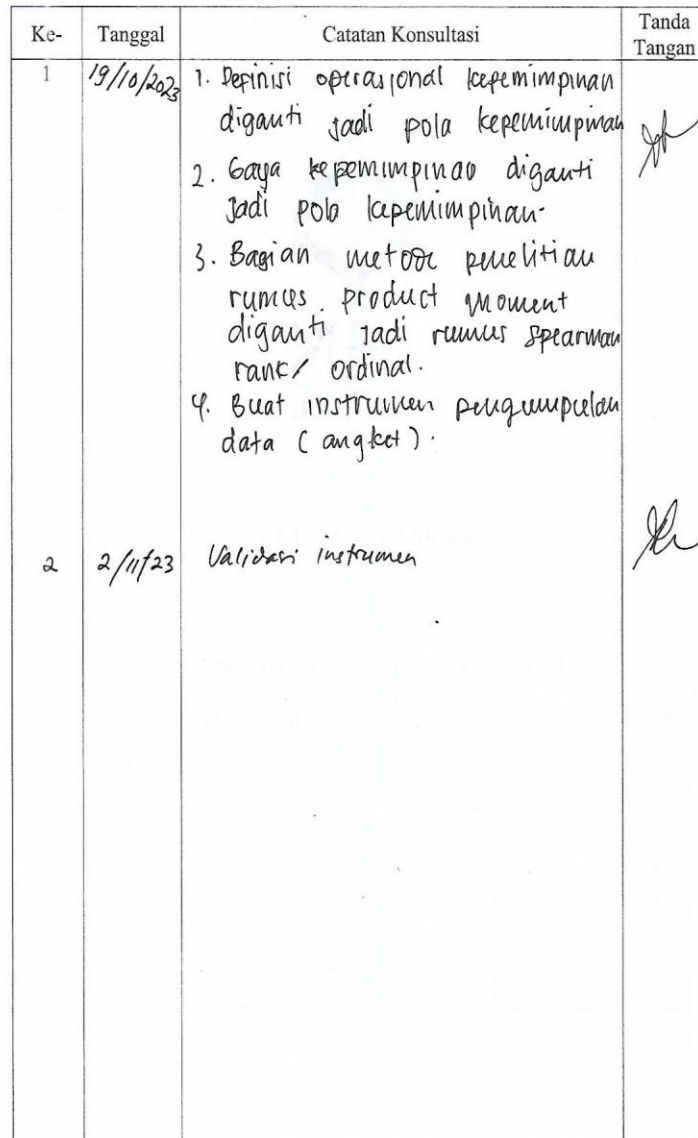 Ke- Tanggal Catatan Konsultasi Tanda Tangan
1 19/10/2023 1. Definisi operasional kepemimpinan
diganti jadi pola kepemimpinan
2. Gaya kepemimpinan diganti
jadi pola kepemimpinan-
3. Bagian metode penelitian
rumus product moment
diganti jadi rumus spearman
rank/ ordinal.
4. Buat instrumen pengumpulan
data (angket).
2 2/11/23 Validasi instrumen